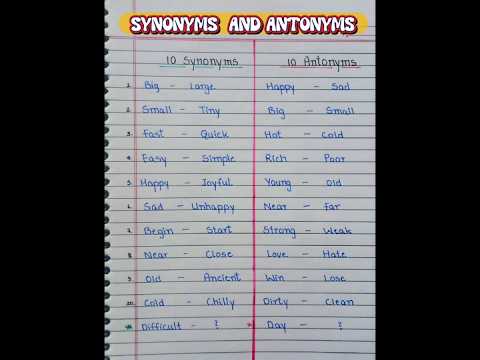 SYNONYMS AND ANTONYMS
10 Synonyms 10 Antonyms
1. Big - Large Happy - Sad
2. Small - Tiny Big - Small
3. Fast - Quick Hot - Cold
4. Easy - Simple Rich - Poor
5. Happy - Joyful Young - Old
6. Sad - Unhappy Near - Far
7. Begin - Start Strong - Weak
8. Near - Close Love - Hate
9. Old - Ancient Win - Lose
10. Cold - Chilly Dirty - Clean
* Difficult - ? * Day - ?